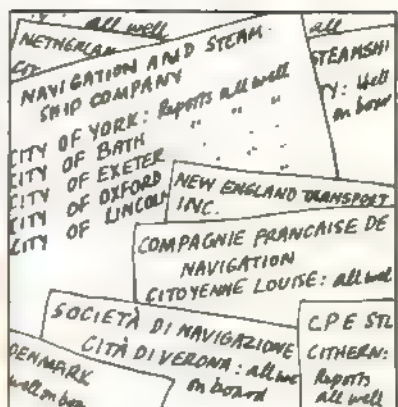 all well
NETHERLAN
all
STEAMSHI
TY: Well
on boar
NAVIGATION AND STEAM-
SHIP COMPANY
CITY OF YORK: Reports all well
CITY OF BATH " " "
CITY OF EXETER " " "
CITY OF OXFORD " " "
CITY OF LINCOLN
NEW ENGLAND TRANSPORT
INC.
COMPAGNIE FRANCAISE DE
NAVIGATION
CITOYENNE LOUISE: all wel
SOCIETÀ DI NAVIGAZIONE
CITÀ DI VERONA: all we
on board
C.P.E STL
CITHERN:
Reports
all well
DENMARK
well on boa